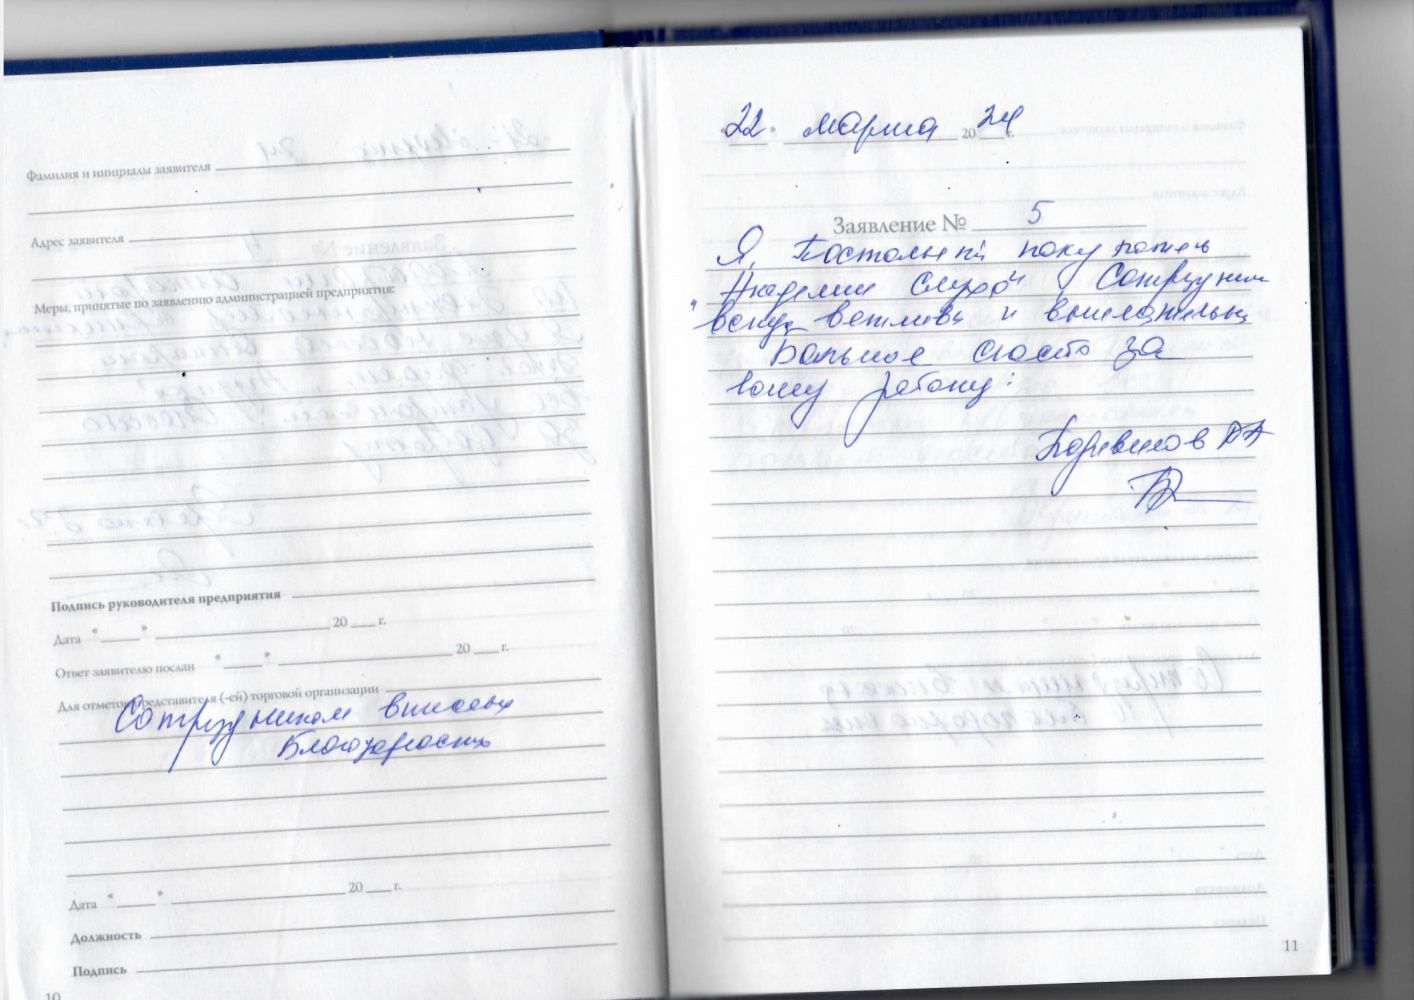 Фамилия и инициалы заявителя
Адрес заявителя
Меры, принятые по заявлению администрацией предприятия:
Подпись руководителя предприятия
Дата " " 20 г.
Ответ заявителю послан " " 20 г.
Для отметок представителя (-ей) торговой организации
Сотрудникам вынесена
Благодарность
Дата " " 20 г.
Должность
Подпись
10
22 марта 2024 г.
Заявление № 5
Я, Постоянный покупатель
"Академии слуха" Сотрудники
всегда вежливы и внимательны
Большое спасибо за
вашу работу!
11